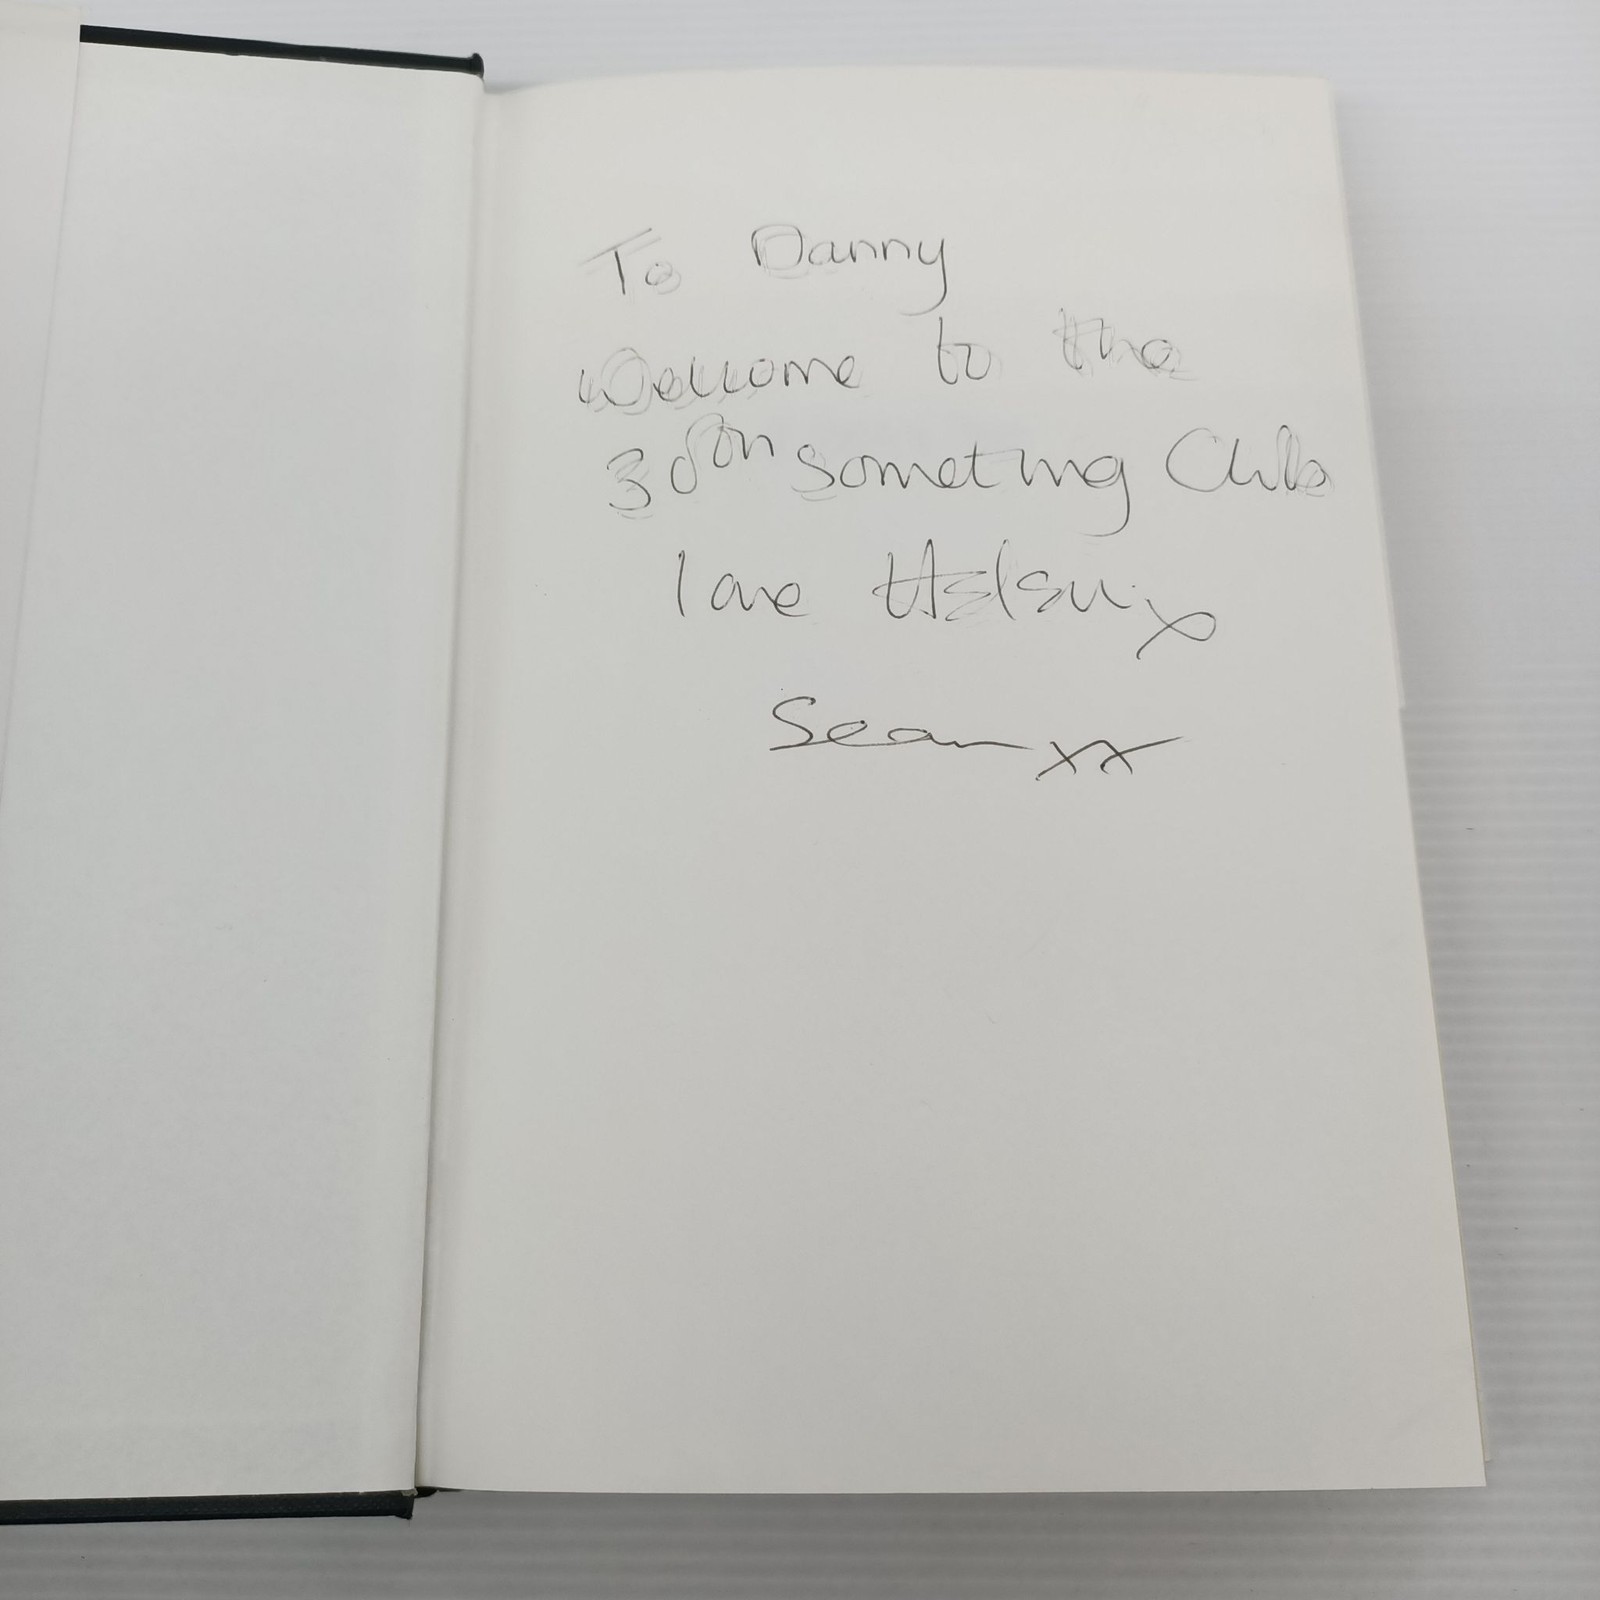 To Danny
Welcome to the
30 Something Club
love Helen x
Sean xx